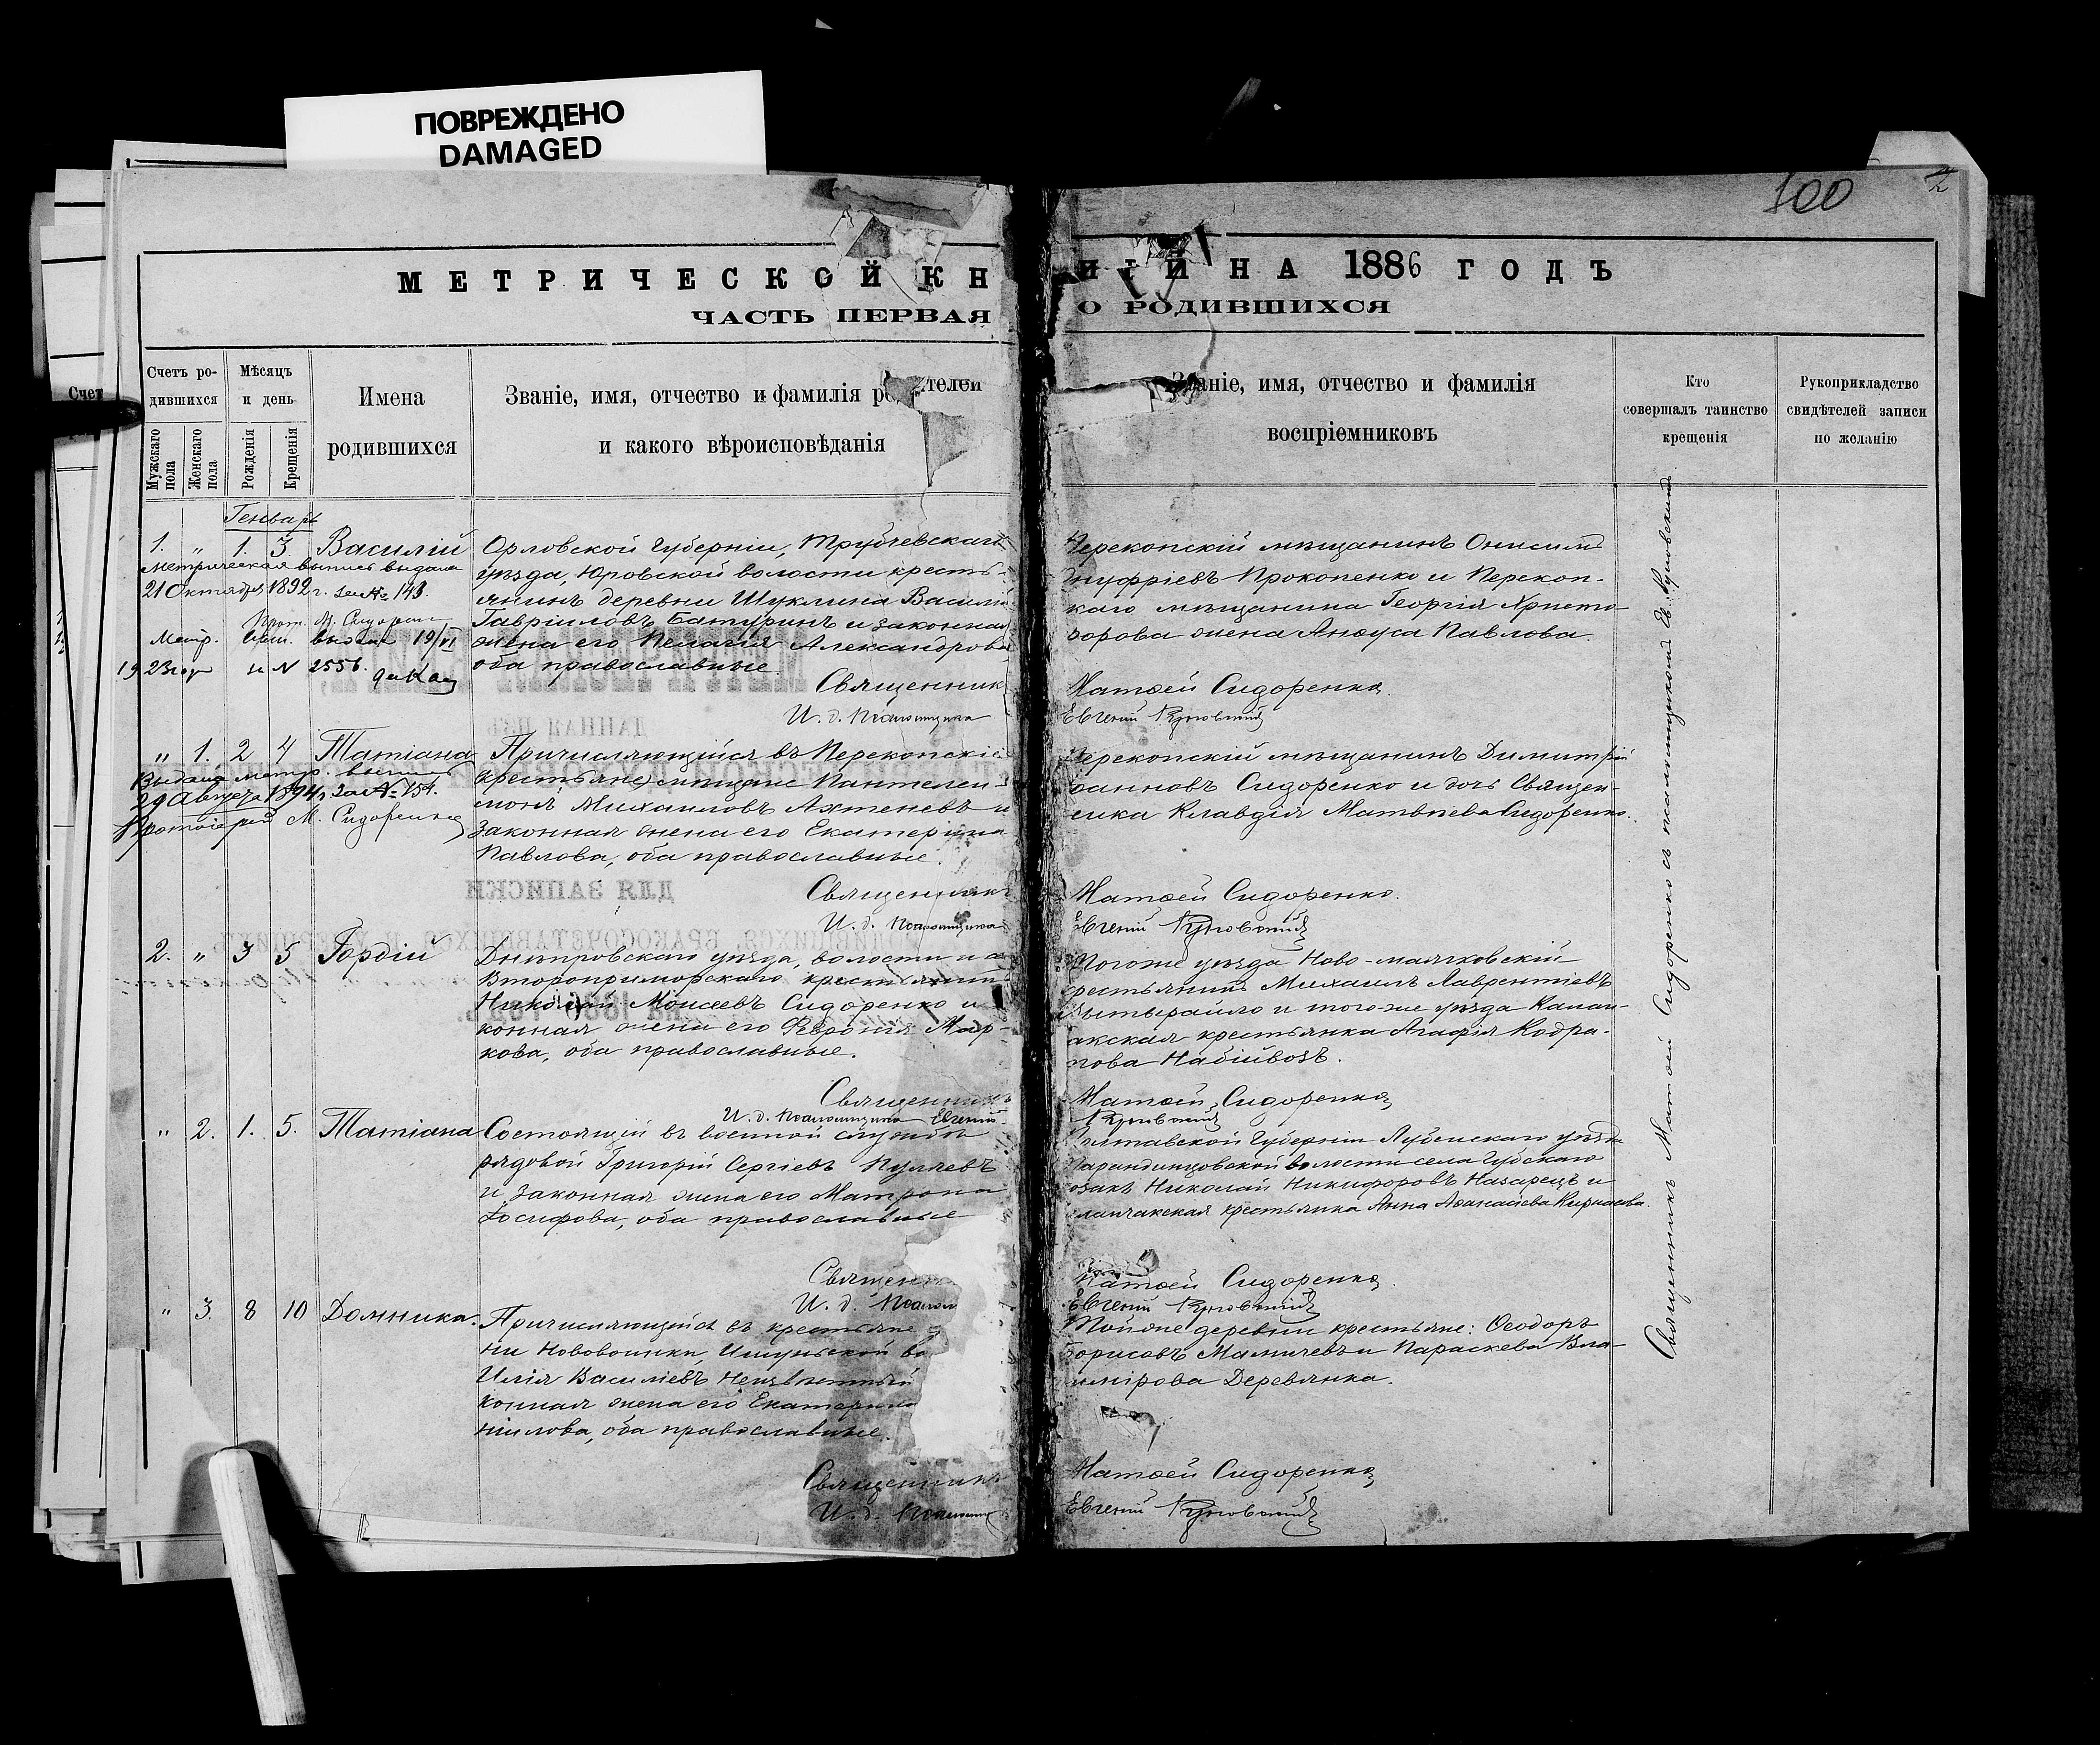 ПОВРЕЖДЕНО
DAMAGED
100
2
МЕТРИЧЕСКОЙ КН
ИГИ НА 1886 ГОДЪ
ЧАСТЬ ПЕРВАЯ
О РОДИВШИХСЯ
Счетъ ро-
дившихся
Мужскаго пола
Женскаго пола
Мѣсяцъ
и день
Рожденія
Крещенія
Имена
родившихся
Званіе, имя, отчество и фамилія родителей
и какого вѣроисповѣданія
Званіе, имя, отчество и фамилія
воспріемниковъ
Кто
совершалъ таинство
крещенія
Рукоприкладство
свидѣтелей записи
по желанію
Счет
Генварь
1. " 1. 3. Василій
Метрическая выпись выдана
21 Октября 1892 г. за № 143.
Прот. М. Сидоренко
Метр. вып. выдана 19/VI
1923 году за N 2556.
Орловской Губерніи, Трубчевскаго
уѣзда, Юровской волости кресть-
янинъ деревни Шуклина Василій
Гавріиловъ Батуринъ и законная
жена его Пелагія Александрова
оба православные.
Священник
И. д. Псаломщика
Перекопскій мѣщанинъ Онисимъ
нуфріевъ Прокопенко и Перекоп-
каго мѣщанина Георгія Христо-
форова жена Анѳуса Павлова.
Матѳей Сидоренко.
Евгеній
" 1. 2 4 Татіана
Выдана метр. выпись
29 Августа 1894 г. за № 154.
Протоіерей М. Сидоренко
Причисляющійся въ Перекопскіе
крестьяне, мѣщане Пантелеи-
монъ Михаиловъ Ахтеневъ и
законная жена его Екатерина
Павлова, оба православные.
Священникъ
И. д. Псаломщика
Перекопскій мѣщанинъ Димитрій
оанновъ Сидоренко и дочь Священ-
ника Клавдія Матвѣева Сидоренко.
Матѳей Сидоренко.
Евгеній
2. " 3 5 Гордій
Днѣпровскаго уѣзда, волости и с
Второприморскаго крестьянинъ
Николай Моисеевъ Сидоренко и
конная жена его Ѳевронія Мар-
кова, оба православные.
Священникъ
И. д. Псаломщика Евгеній
Того же уѣзда Ново-маячковскій
рестьянинъ Михаилъ Лаврентіевъ
и того же уѣзда Калан-
акская крестьянка Агафія Кодра-
това Набійвозъ.
Матѳей Сидоренко
" 2. 1. 5. Татіана
Состоящій въ военной службѣ
рядовой Григорій Сергіевъ Пуляевъ
и законная жена его Матрона
Іосифова, оба православные
Священ
И. д. Псалом
лтавской Губерніи Лубенскаго уѣзда
волости села Губскаго
озакъ Николай Никифоровъ Назарецъ и
ланчакская крестьянка Анна Аѳанасіева Кирнасова.
Матѳей Сидоренко.
Евгеній
" 3. 8 10 Домника.
Причисляющійся въ крестьяне
ни Нововоинки, Ишуньской во
Илія Василіевъ Неизвѣстный
конная жена его Екатерина
ніилова, оба православные.
Священникъ
И. д. Псаломщ
Той же деревни крестьяне: Ѳеодоръ
Борисовъ Мамичевъ и Параскева Вла-
имірова Деревянка.
Матѳей Сидоренко
Евгеній
Священникъ Матѳей Сидоренко съ псаломщикомъ Ев.
МЕТРИЧЕСКАЯ
ДАННАЯ ИЗЪ
ДЛЯ ЗАПИСКИ
РОДИВШИХСЯ, БРАКОСОЧЕТАВШИХСЯ И УМЕРШИХЪ